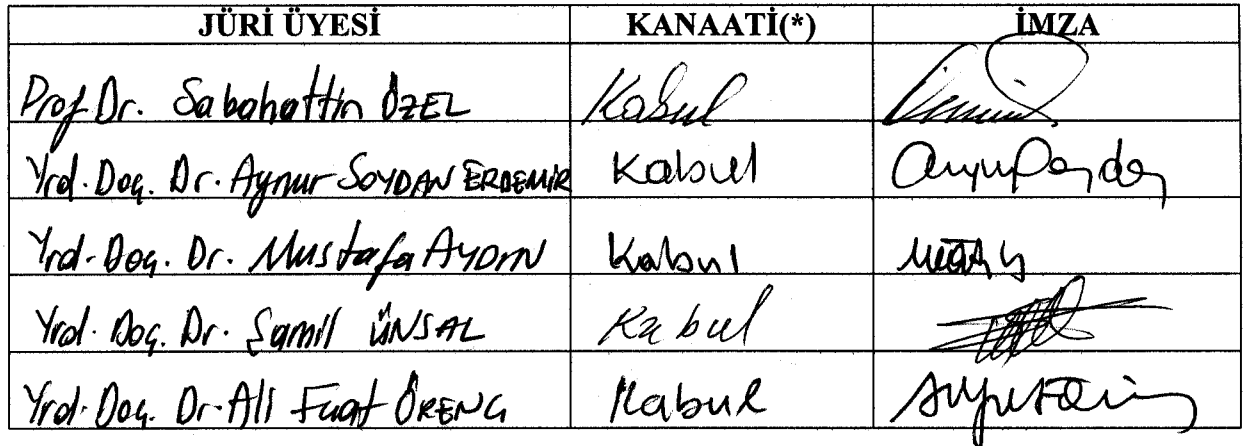 JÜRİ ÜYESİ KANAATİ(*) İMZA
Prof. Dr. Sabahattin ÖZEL Kabul
Yrd. Doç. Dr. Aynur SOYDAN ERDEMİR Kabul
Yrd. Doç. Dr. Mustafa AYDIN Kabul
Yrd. Doç. Dr. Şamil ÜNSAL Kabul
Yrd. Doç. Dr. Ali Fuat ÖRENÇ Kabul